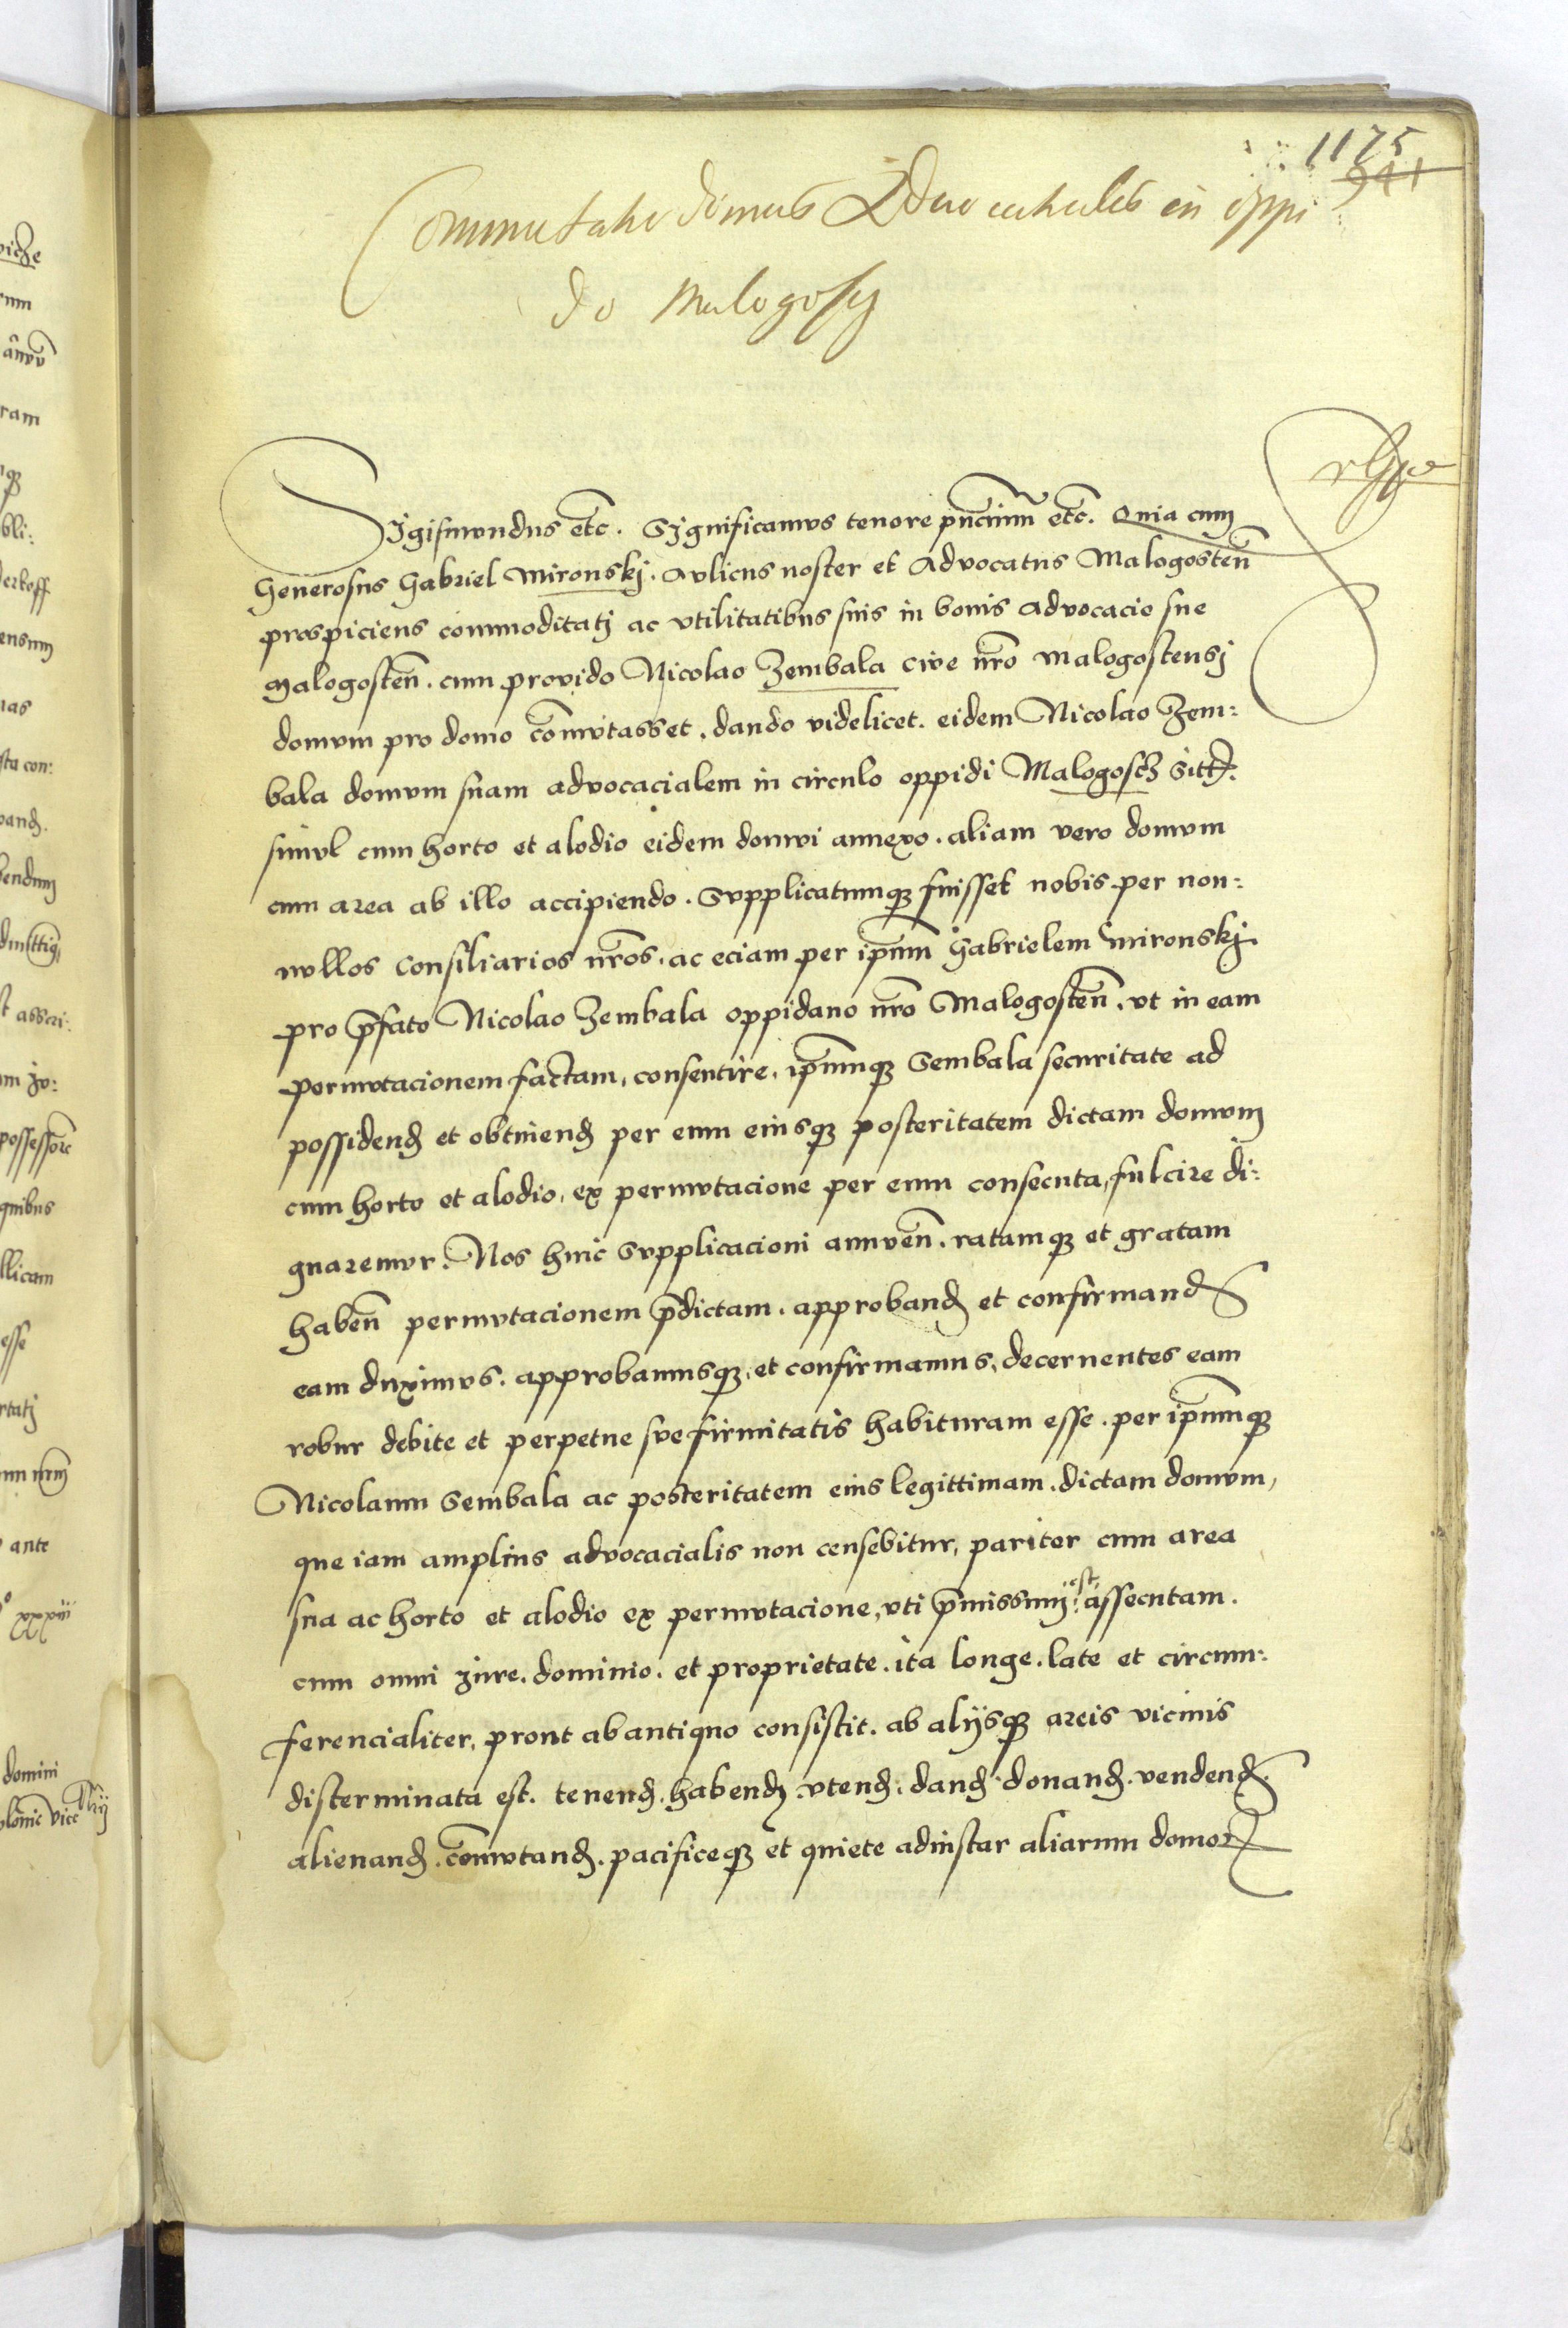 1175
541
Commutatio domus Advocatialis in oppi
do Malogosty
Sigismundus etc. Significamus tenore pn̄cium etc. Quia cum
Generosus Gabriel Mironskj. Aulicus noster et Advocatus Malogosten̄
prospiciens commoditatj ac vtilitatibus suis in bonis advocacie sue
Malogosten̄. cum provido Nicolao Zembala cive nr̄o Malogostensj
domum pro domo com̄vtasset. dando videlicet. eidem Nicolao Zem:
bala domum suam advocacialem in circulo oppidi Malogoscz sitt.
simvl cum horto et alodio eidem domui annexo. aliam vero domum
cum area ab illo accipiendo. Supplicatumqȝ fuisset nobis per non:
nvllos consiliarios nr̄os. ac eciam per ip̄um Gabrielem Mironskj
pro p̄fato Nicolao Zembala oppidano nr̄o Malogosten̄. vt in eam
permvtacionem factam, consentire. ip̄umqȝ Sembala securitate ad
possidend et obtinend per eum eiusqȝ posteritatem dictam domum
cum horto et alodio, ex permvtacione per eum consecuta, fulcire di:
gnaremvr. Nos huic supplicacioni annuen̄. ratamqȝ et gratam
haben̄ permvtacionem p̄dictam. approband et confirmand
eam duximvs. approbamusqȝ. et confirmamus. decernentes eam
robur debite et perpetue sve firmitatis habituram esse. per ip̄umqȝ
Nicolaum Sembala ac posteritatem eius legittimam. dictam domum,
que iam amplius advocacialis non censebitur, pariter cum area
sua ac horto et alodio ex permvtacione, vti p̄missum est assecutam.
cum omni jure. dominio. et proprietate. ita longe. late et circum:
ferencialiter, prout ab antiquo consistit. ab alijsqȝ areis vicinis
disterminata est. tenend. habend. vtend. dand. donand. vendend.
alienand. com̄vtand. pacificeqȝ et quiete adinstar aliarum domor